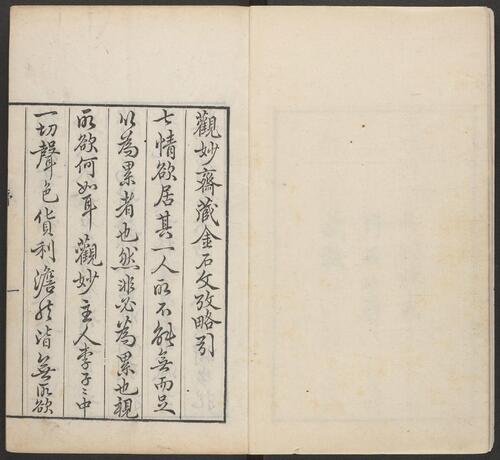 觀妙齋藏金石文攷略引
七情欲居其一人所不能無而足
以為累者也然非必為累也視
所欲何如耳觀妙主人李子〻中
一切聲色貨利澹然皆無所欲